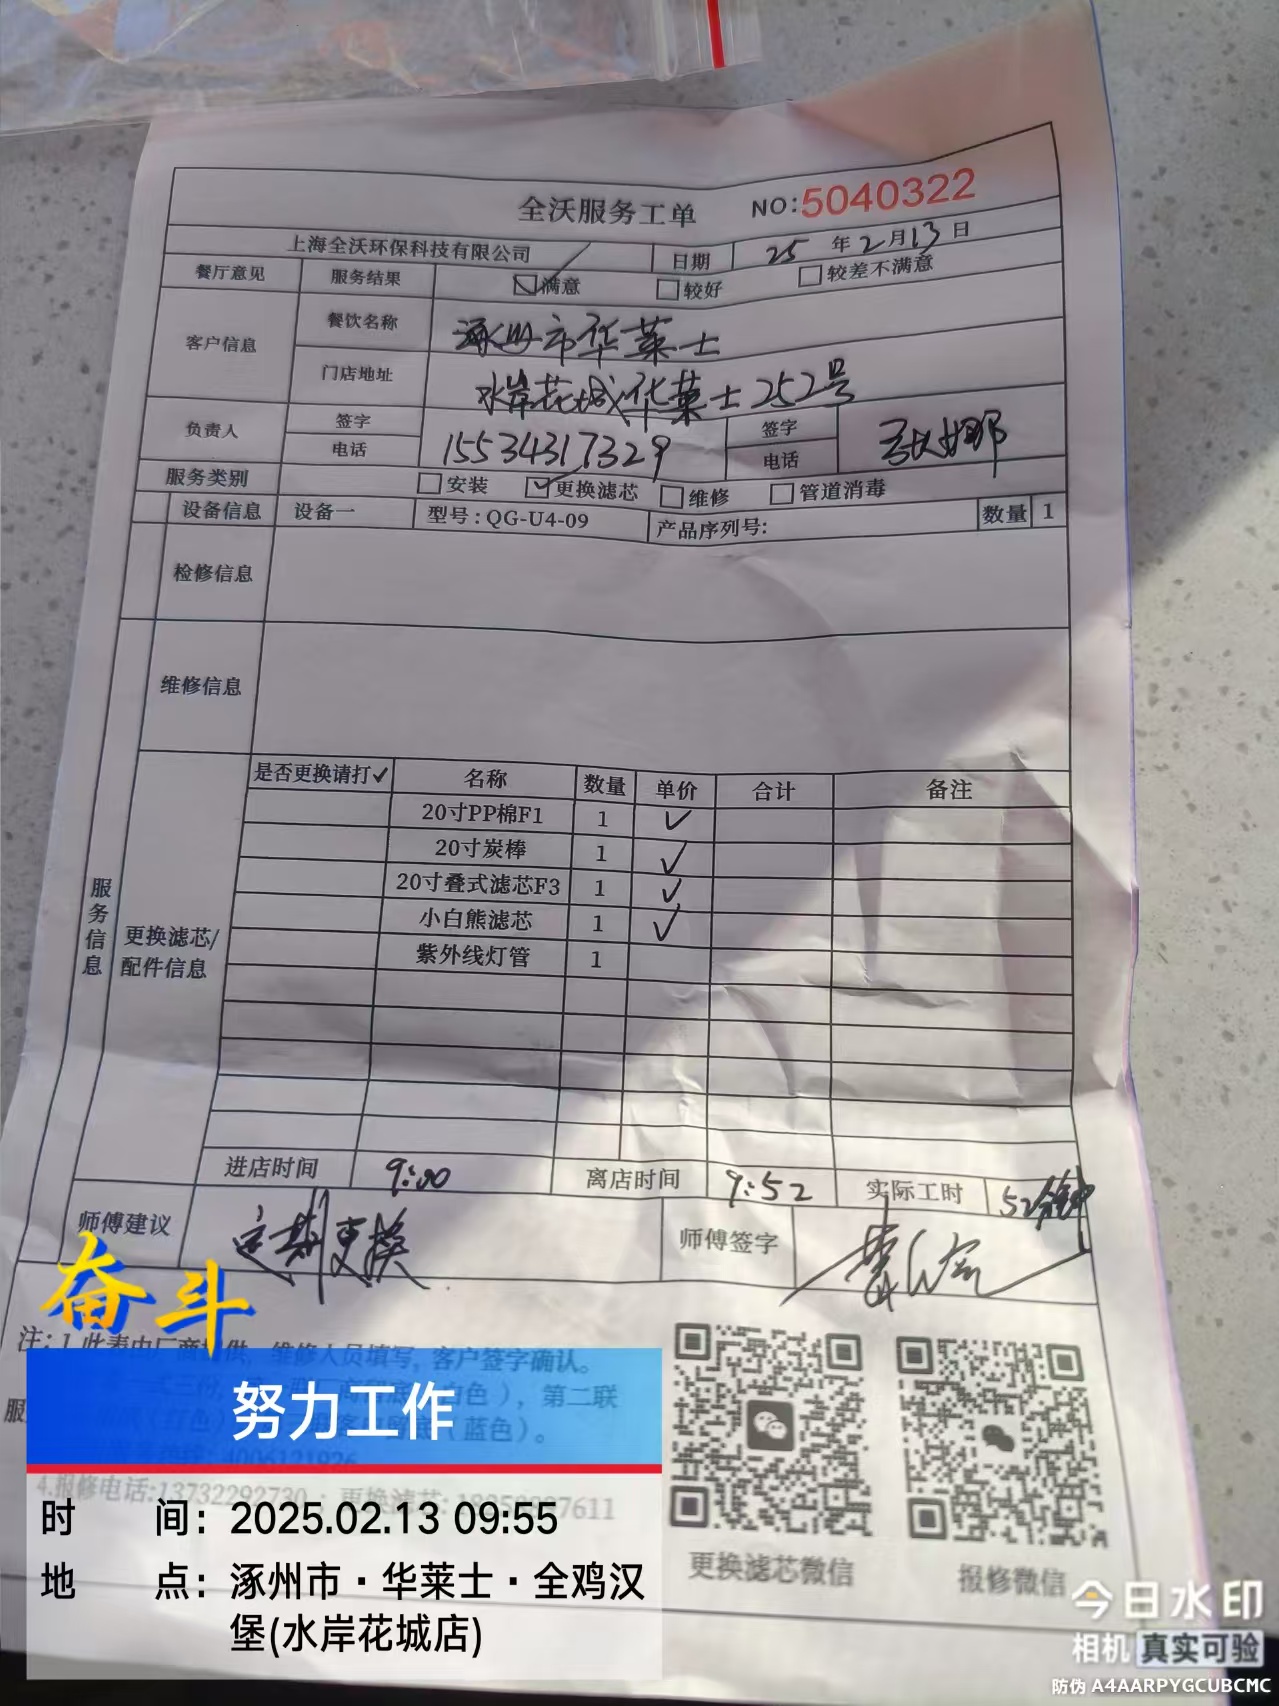 全沃服务工单 NO:5040322
上海全沃环保科技有限公司 日期 25 年 2 月 13 日
餐厅意见 服务结果 满意 较好 较差不满意
客户信息 餐饮名称 涿州市华莱士
门店地址 水岸花城华莱士252号
负责人 签字 签字 张娜
电话 15534317329 电话
服务类别 安装 ✓更换滤芯 维修 管道消毒
设备信息 设备一 型号:QG-U4-09 产品序列号: 数量 1
检修信息
维修信息
服务信息
更换滤芯/
配件信息
是否更换请打✓ 名称 数量 单价 合计 备注
20寸PP棉F1 1 ✓
20寸炭棒 1 ✓
20寸叠式滤芯F3 1 ✓
小白熊滤芯 1 ✓
紫外线灯管 1
进店时间 9:00 离店时间 9:52 实际工时 52分钟
师傅建议 定期更换 师傅签字
注:1.此表由厂商提供,维修人员填写,客户签字确认。
白色),第二联
留底(蓝色)。
4.报修电话:13732292730;更换滤芯:
更换滤芯微信 报修微信
奋斗
努力工作
时 间:2025.02.13 09:55
地 点:涿州市·华莱士·全鸡汉
堡(水岸花城店)
今日水印
相机 真实可验
防伪 A4AARPYGCUBCMC